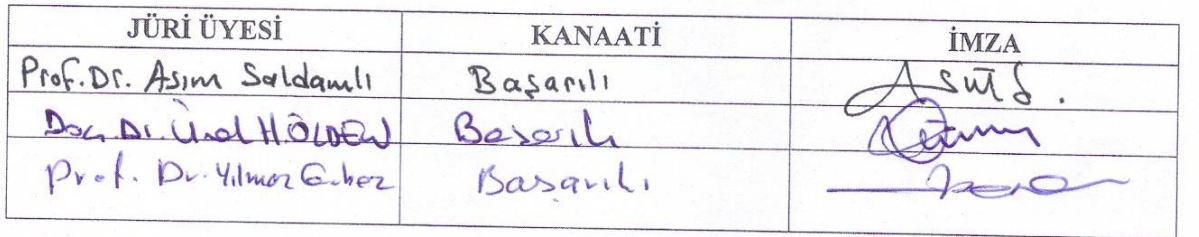 JÜRİ ÜYESİ KANAATİ İMZA
Prof. Dr. Asım Saldamlı Başarılı
Doç. Dr. Ünal H. ÖLDEN Başarılı
Prof. Dr. Yılmaz Başarılı